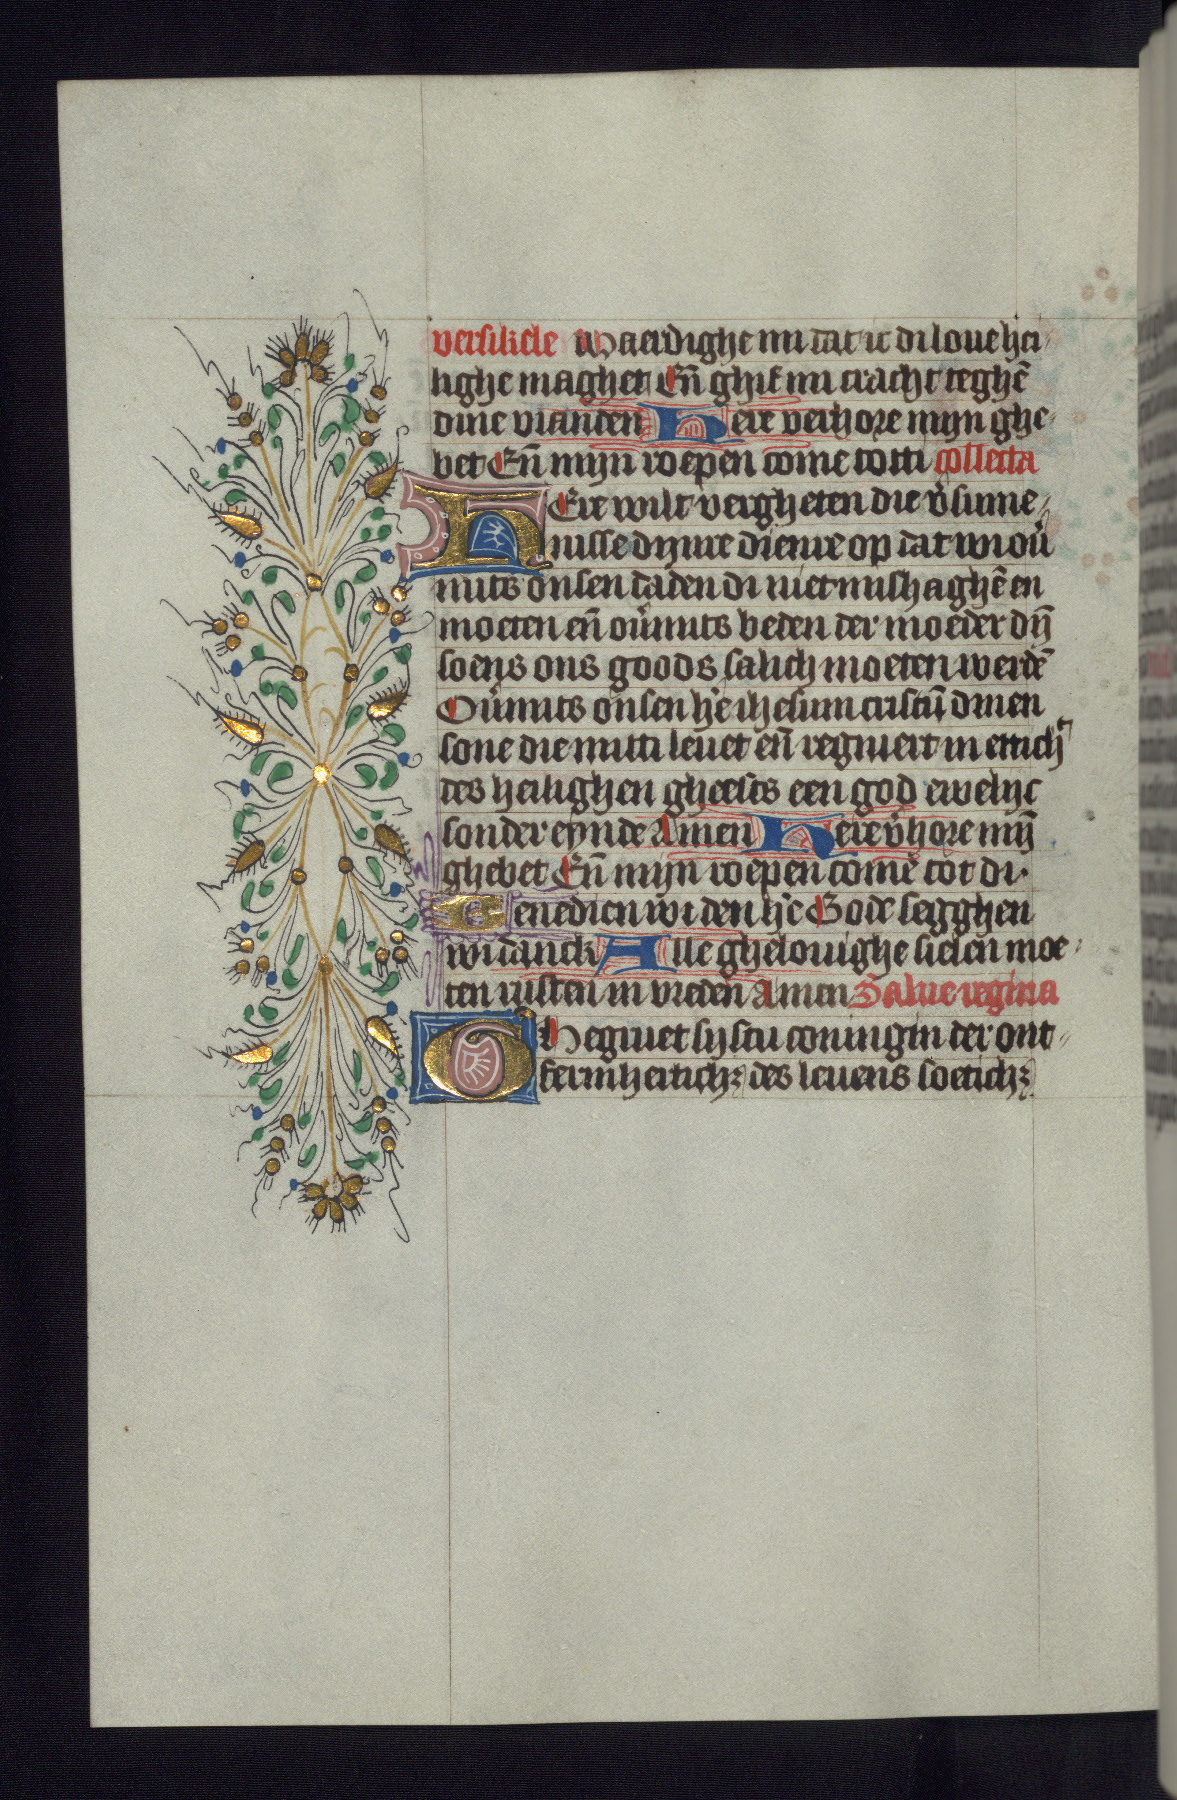 versikele Waerdighe mi dat ic di loue hei
lighe maghet Eñ ghif mi cracht teghē
dine vianden Here verhore mijn ghe
bet Eñ mijn roepen come totti collecta
HEre wilt vergheten die v̓sume
nisse dijnre dienre op dat wi ou̓
mits onsen daden di niet mishaghē en
moeten eñ ou̓mits beden der moeder dijn̄
soens ons goods salich moeten werdē
Ou̓mits onsen hē ihesum cristū dinen
sone die mitti leuet eñ regniert in enich
des heilighen gheests een god ewelijc
sonder eynde Amen Here v̓hore mijn̄
ghebet Eñ mijn roepen come tot di.
Benedien wi den hē Gode segghen
wi danck Alle ghelouighe sielen moe
ten rusten in vreden Amen Salue regina
GHegruet systu coningin der ont
fermherticheꝫ des leuens soeticheꝫ